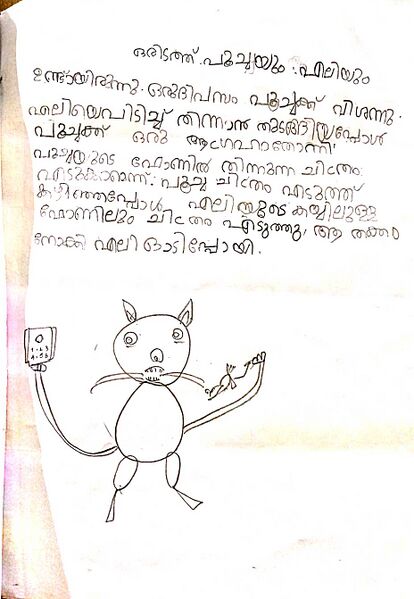 ഒരിടത്ത്. പൂച്ചയും. എലിയും
ഉണ്ടായിരുന്നു. ഒരുദിവസം പൂച്ചക്ക് വിശന്നു.
എലിയെപിടിച്ച് തിന്നാൻ തുടങ്ങിയപ്പോൾ
പൂച്ചക്ക് ഒരു ആഗ്രഹംതോന്നി
പൂച്ചയുടെ ഫോണിൽ തിന്നുന്ന ചിത്രം
എടുക്കാമെന്ന്. പൂച്ച ചിത്രം എടുത്ത്
കഴിഞ്ഞപ്പോൾ എലിയുടെ കയ്യിലുള്ള
ഫോണിലും ചിത്രം എടുത്തു, ആ തക്കം
നോക്കി എലി ഓടിപ്പോയി.